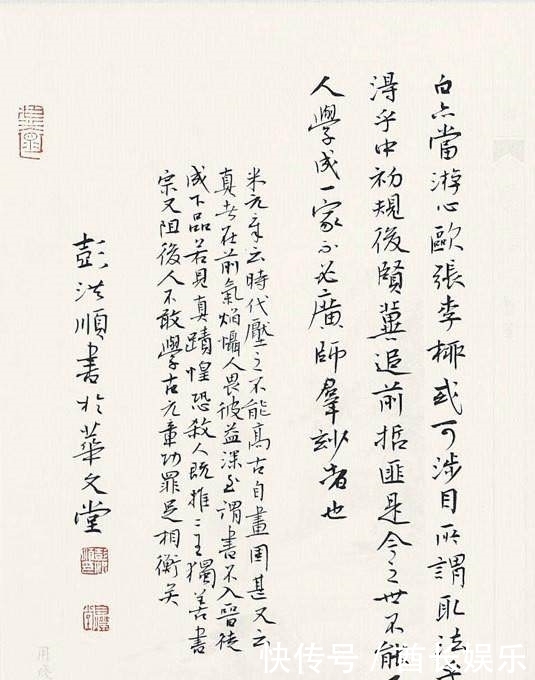 白亦當游心歐張李柳或可涉目所謂取法
得乎中初規後賢冀追前哲匪是今之世不能
人學成一家不必廣師羣妙者也
米元章云時代壓之不能高古自畫固甚又云
真者在前氣焰懾人畏彼益深至謂書不入晉徒
成下品若見真蹟惶恐殺人既推二王獨善書
宗又阻後人不敢學古元章功罪足相衡矣
彭洪順書於華文堂
快传号/酋长娱乐